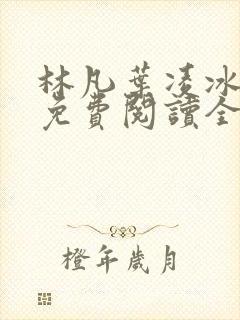 林凡葉凌冰
免費閱讀全
橙年歲月